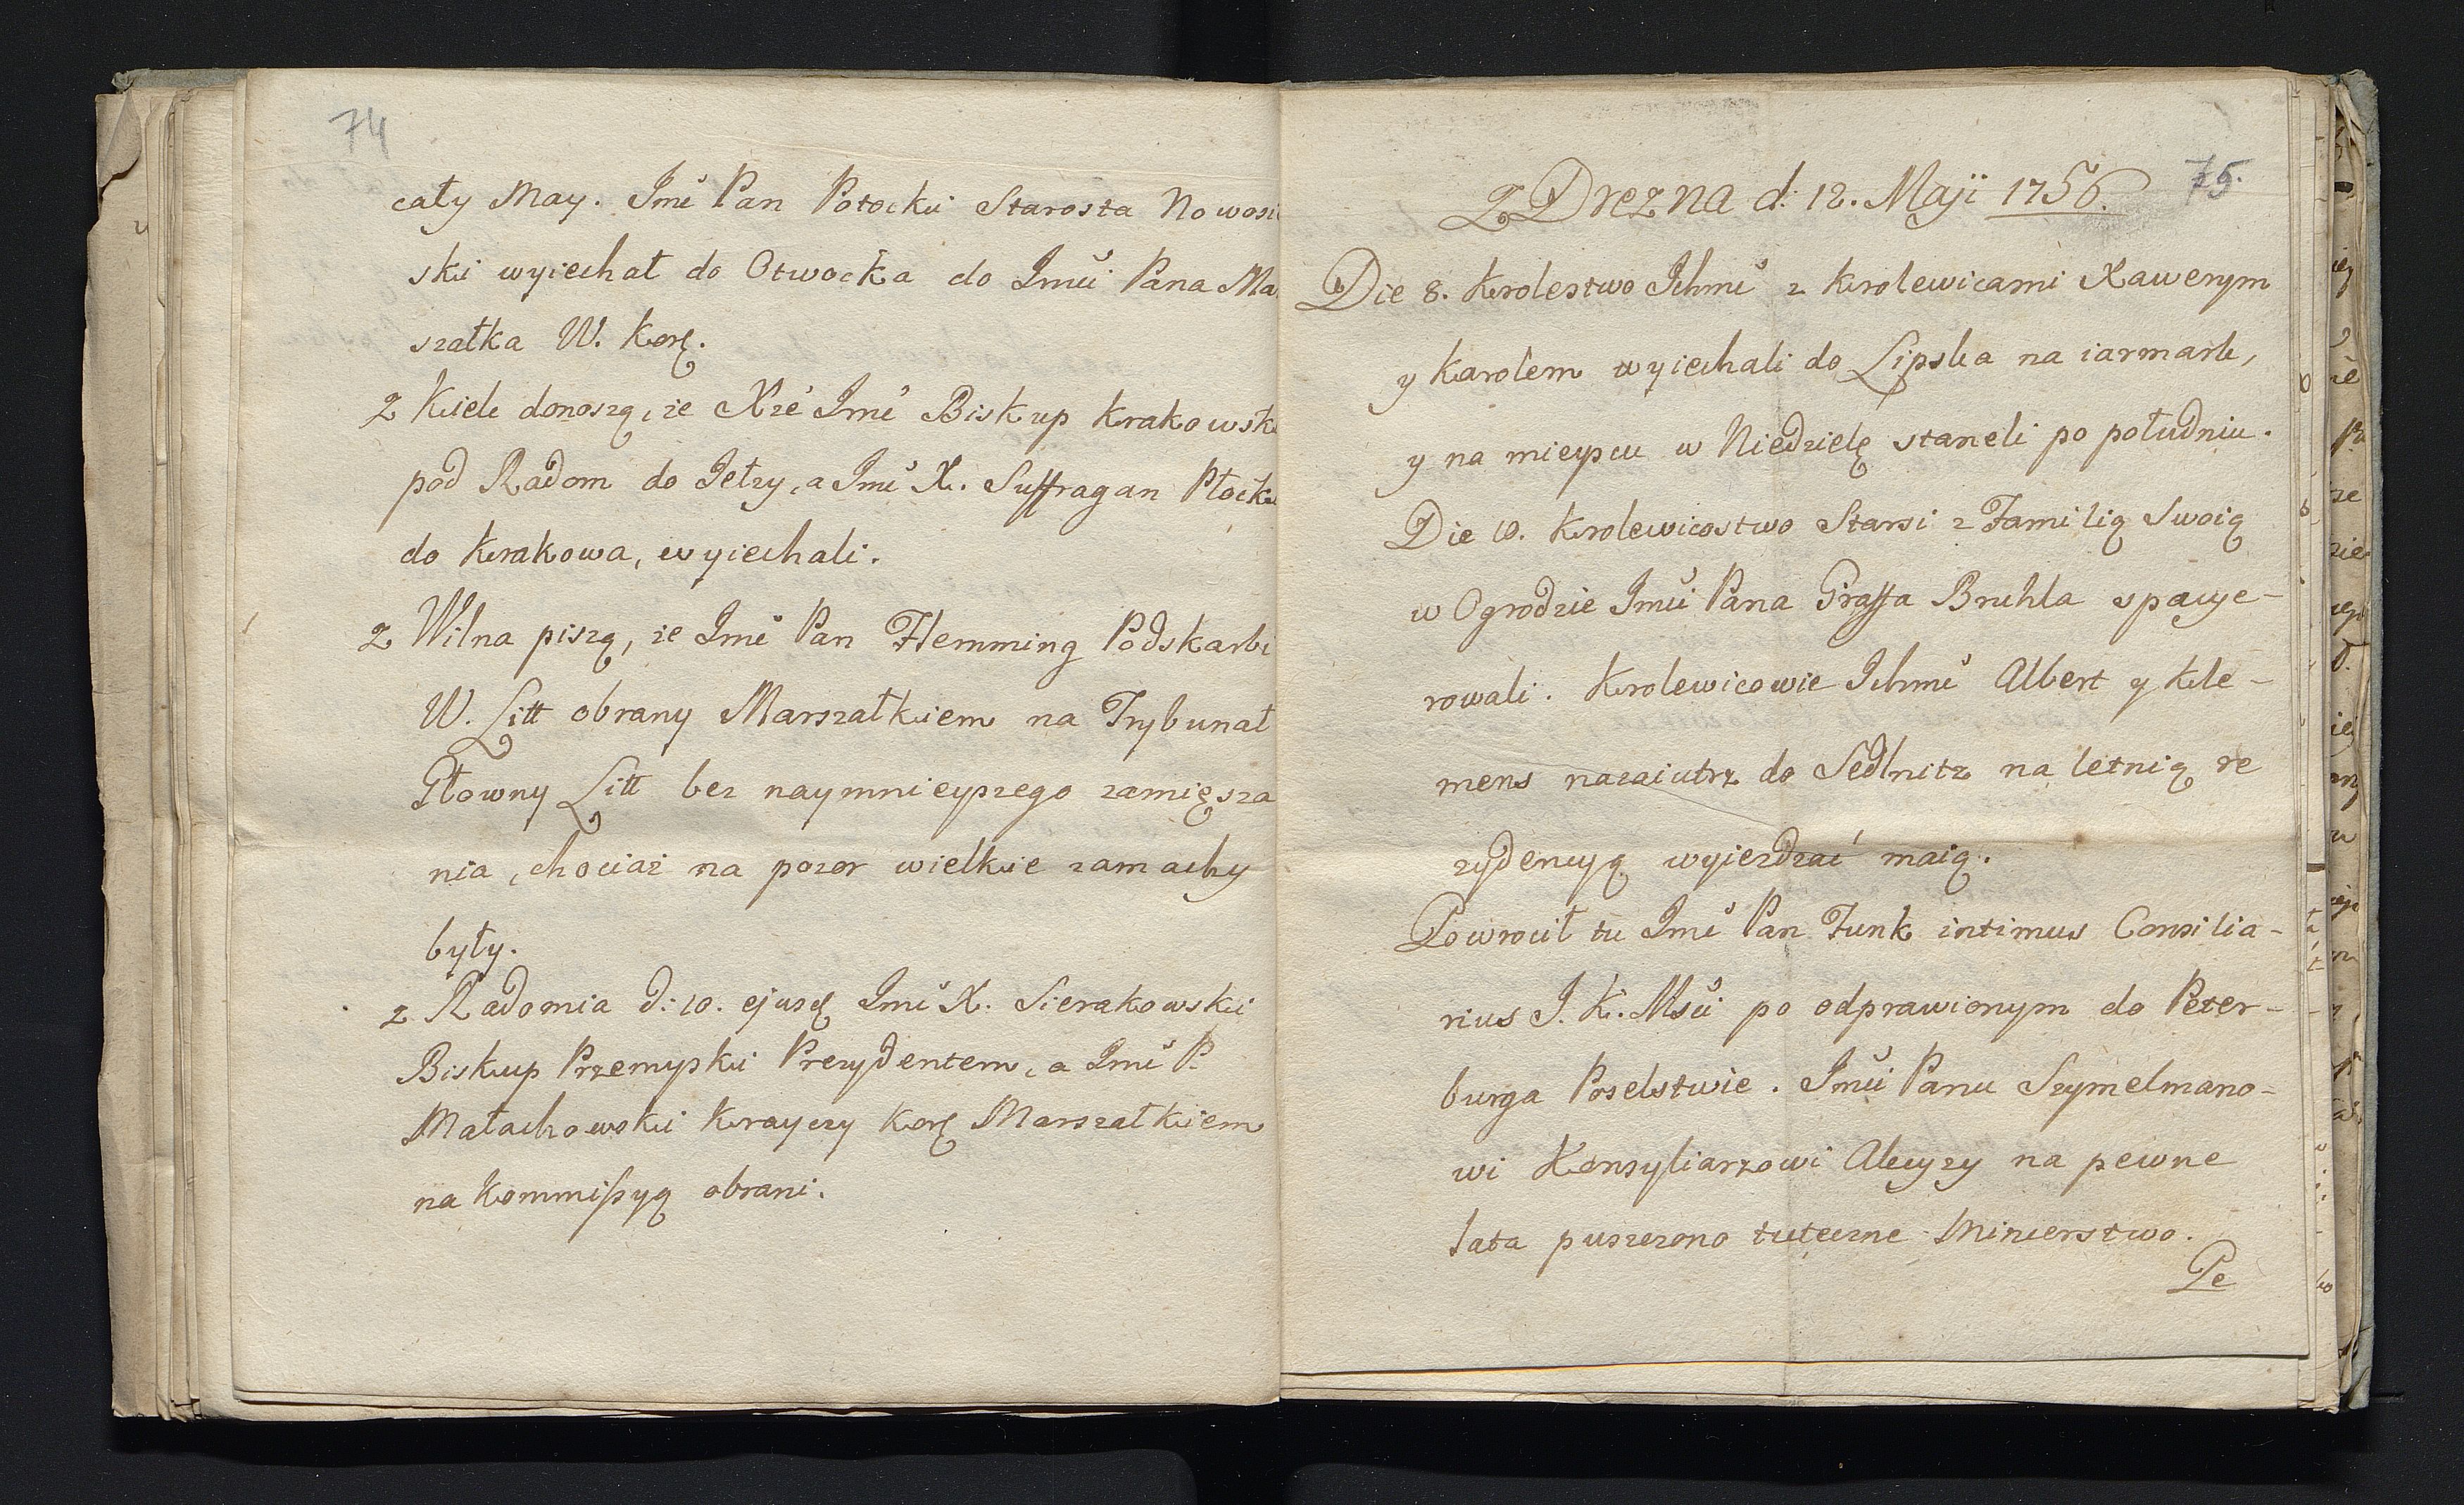 74
cały May. Jmć Pan Potocki Starosta Nowosi
ski wyiechał do Otwocka do Jmći Pana Ma
szałka W. Kor.
Z Kielc donoszą, że Xże Jmć Biskup Krakowski
pod Radom do Jełzy, a Jmć X. Suffragan Płocki
do Krakowa, wyiechali.
Z Wilna piszą, że Jmć Pan Flemming Podskarbi
W. Litt obrany Marszałkiem na Trybunał
Głowny Litt bez naymnieyszego zamięsza
nia, chociaż na pozor wielkie zamachy
były.
z Radomia d: 10. ejusd Jmć X. Sierakowski
Biskup Przemyski Prezydentem, a Jmć P.
Małachowski Krayczy Kor Marszałkiem
na Kommissyą obrani.
75.
Z Drezna d: 12. Maji 1756.
Die 8. Krolestwo Ichmć z Krolewicami Xawerym
y Karolem wyiechali do Lipska na iarmark,
y na mieyscu w Niedzielę staneli po południu.
Die 10. Krolewicostwo Starsi z Familią Swoią
w Ogrodzie Jmći Pana Graffa Bruhla spacye-
rowali. Krolewicowie Ichmć Albert y Kle-
mens nazaiutrz do Sedlnitz na letnią re
zydencyą wyiezdzać maią.
Powrocił tu Jmć Pan Funk intimus Consilia-
rius J. K. Msći po odprawionym do Peter-
burga Poselstwie. Jmći Panu Szymelmano-
wi Konsyliarzowi Akcyzy na pewne
lata puszczono tuteczne Mincerstwo.
Pe